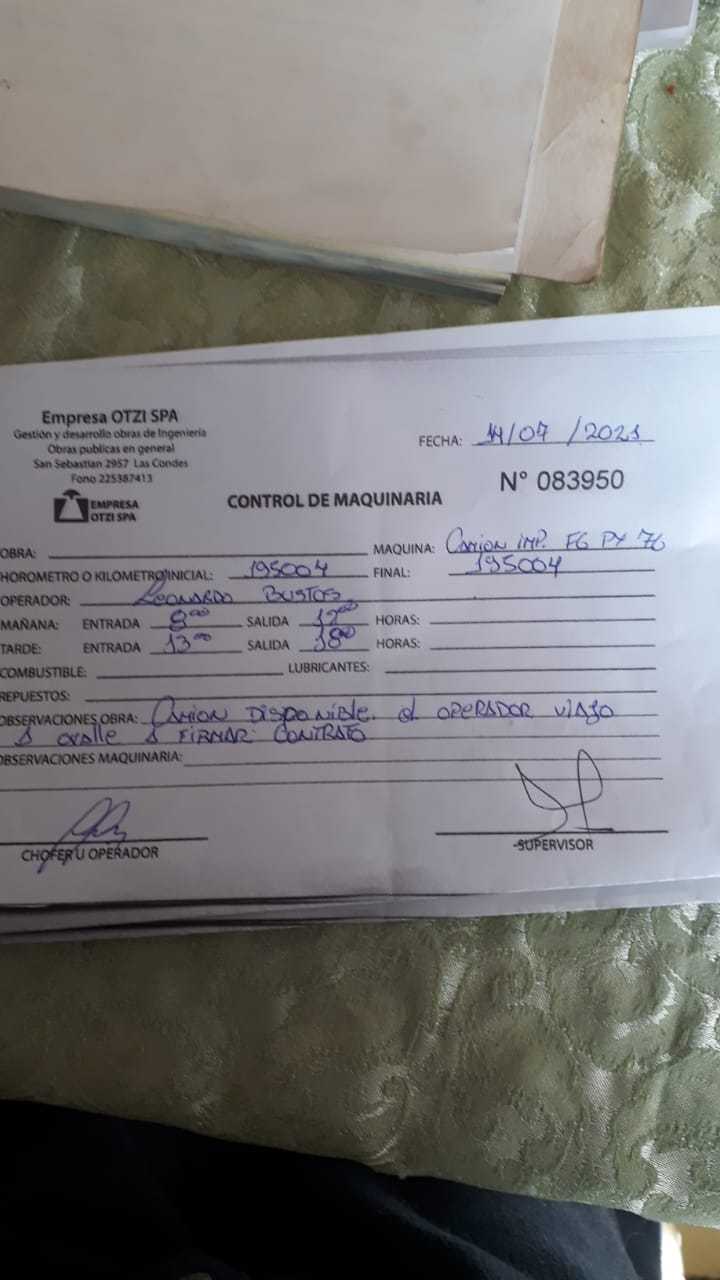 Empresa OTZI SPA
Gestión y desarrollo obras de Ingeniería
Obras publicas en general
San Sebastian 2957 Las Condes
Fono 225387413
EMPRESA
OTZI SPA
FECHA: 14/07/2021
CONTROL DE MAQUINARIA
N° 083950
OBRA:
MAQUINA: Camion IMP. FG PY 76
HOROMETRO O KILOMETRO INICIAL: 195004 FINAL: 195004
OPERADOR: Leonardo Bustos
MAÑANA: ENTRADA 8:00 SALIDA 12:00 HORAS:
TARDE: ENTRADA 13:00 SALIDA 18:00 HORAS:
COMBUSTIBLE: LUBRICANTES:
REPUESTOS:
OBSERVACIONES OBRA: CAMION DISPONIBLE. el OPERADOR VIAJO
A ovalle A FIRMAR CONTRATO
OBSERVACIONES MAQUINARIA:
CHOFER U OPERADOR
-SUPERVISOR